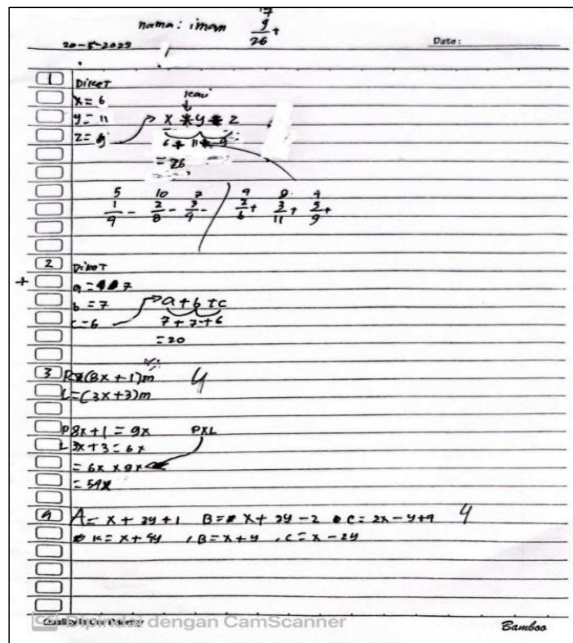 nama : iman
17
9
26 +
20-5-2025
Date:
1 Diket
x = 6
y = 11
z = 9
kali
x * y * z
6 + 11 + 9
= 26
5 10 7 9 8 4
1 - 2 - 3 - 3 + 3 + 5 +
4 8 9 6 11 9
2 Diket
a = 7
b = 7
c = 6
a + b + c
7 + 7 + 6
= 20
3 P = (8x + 1) m
L = (3x + 3) m
4
P 8x + 1 = 9x P x L
L 3x + 3 = 6x
= 6x x 9x
= 54x
4 A = x + 3y + 1 B = x + 2y - 2 C = 2x - y + 4
4
= x + 4y , B = x + y , C = x - 2y
dengan CamScanner
Bamboo